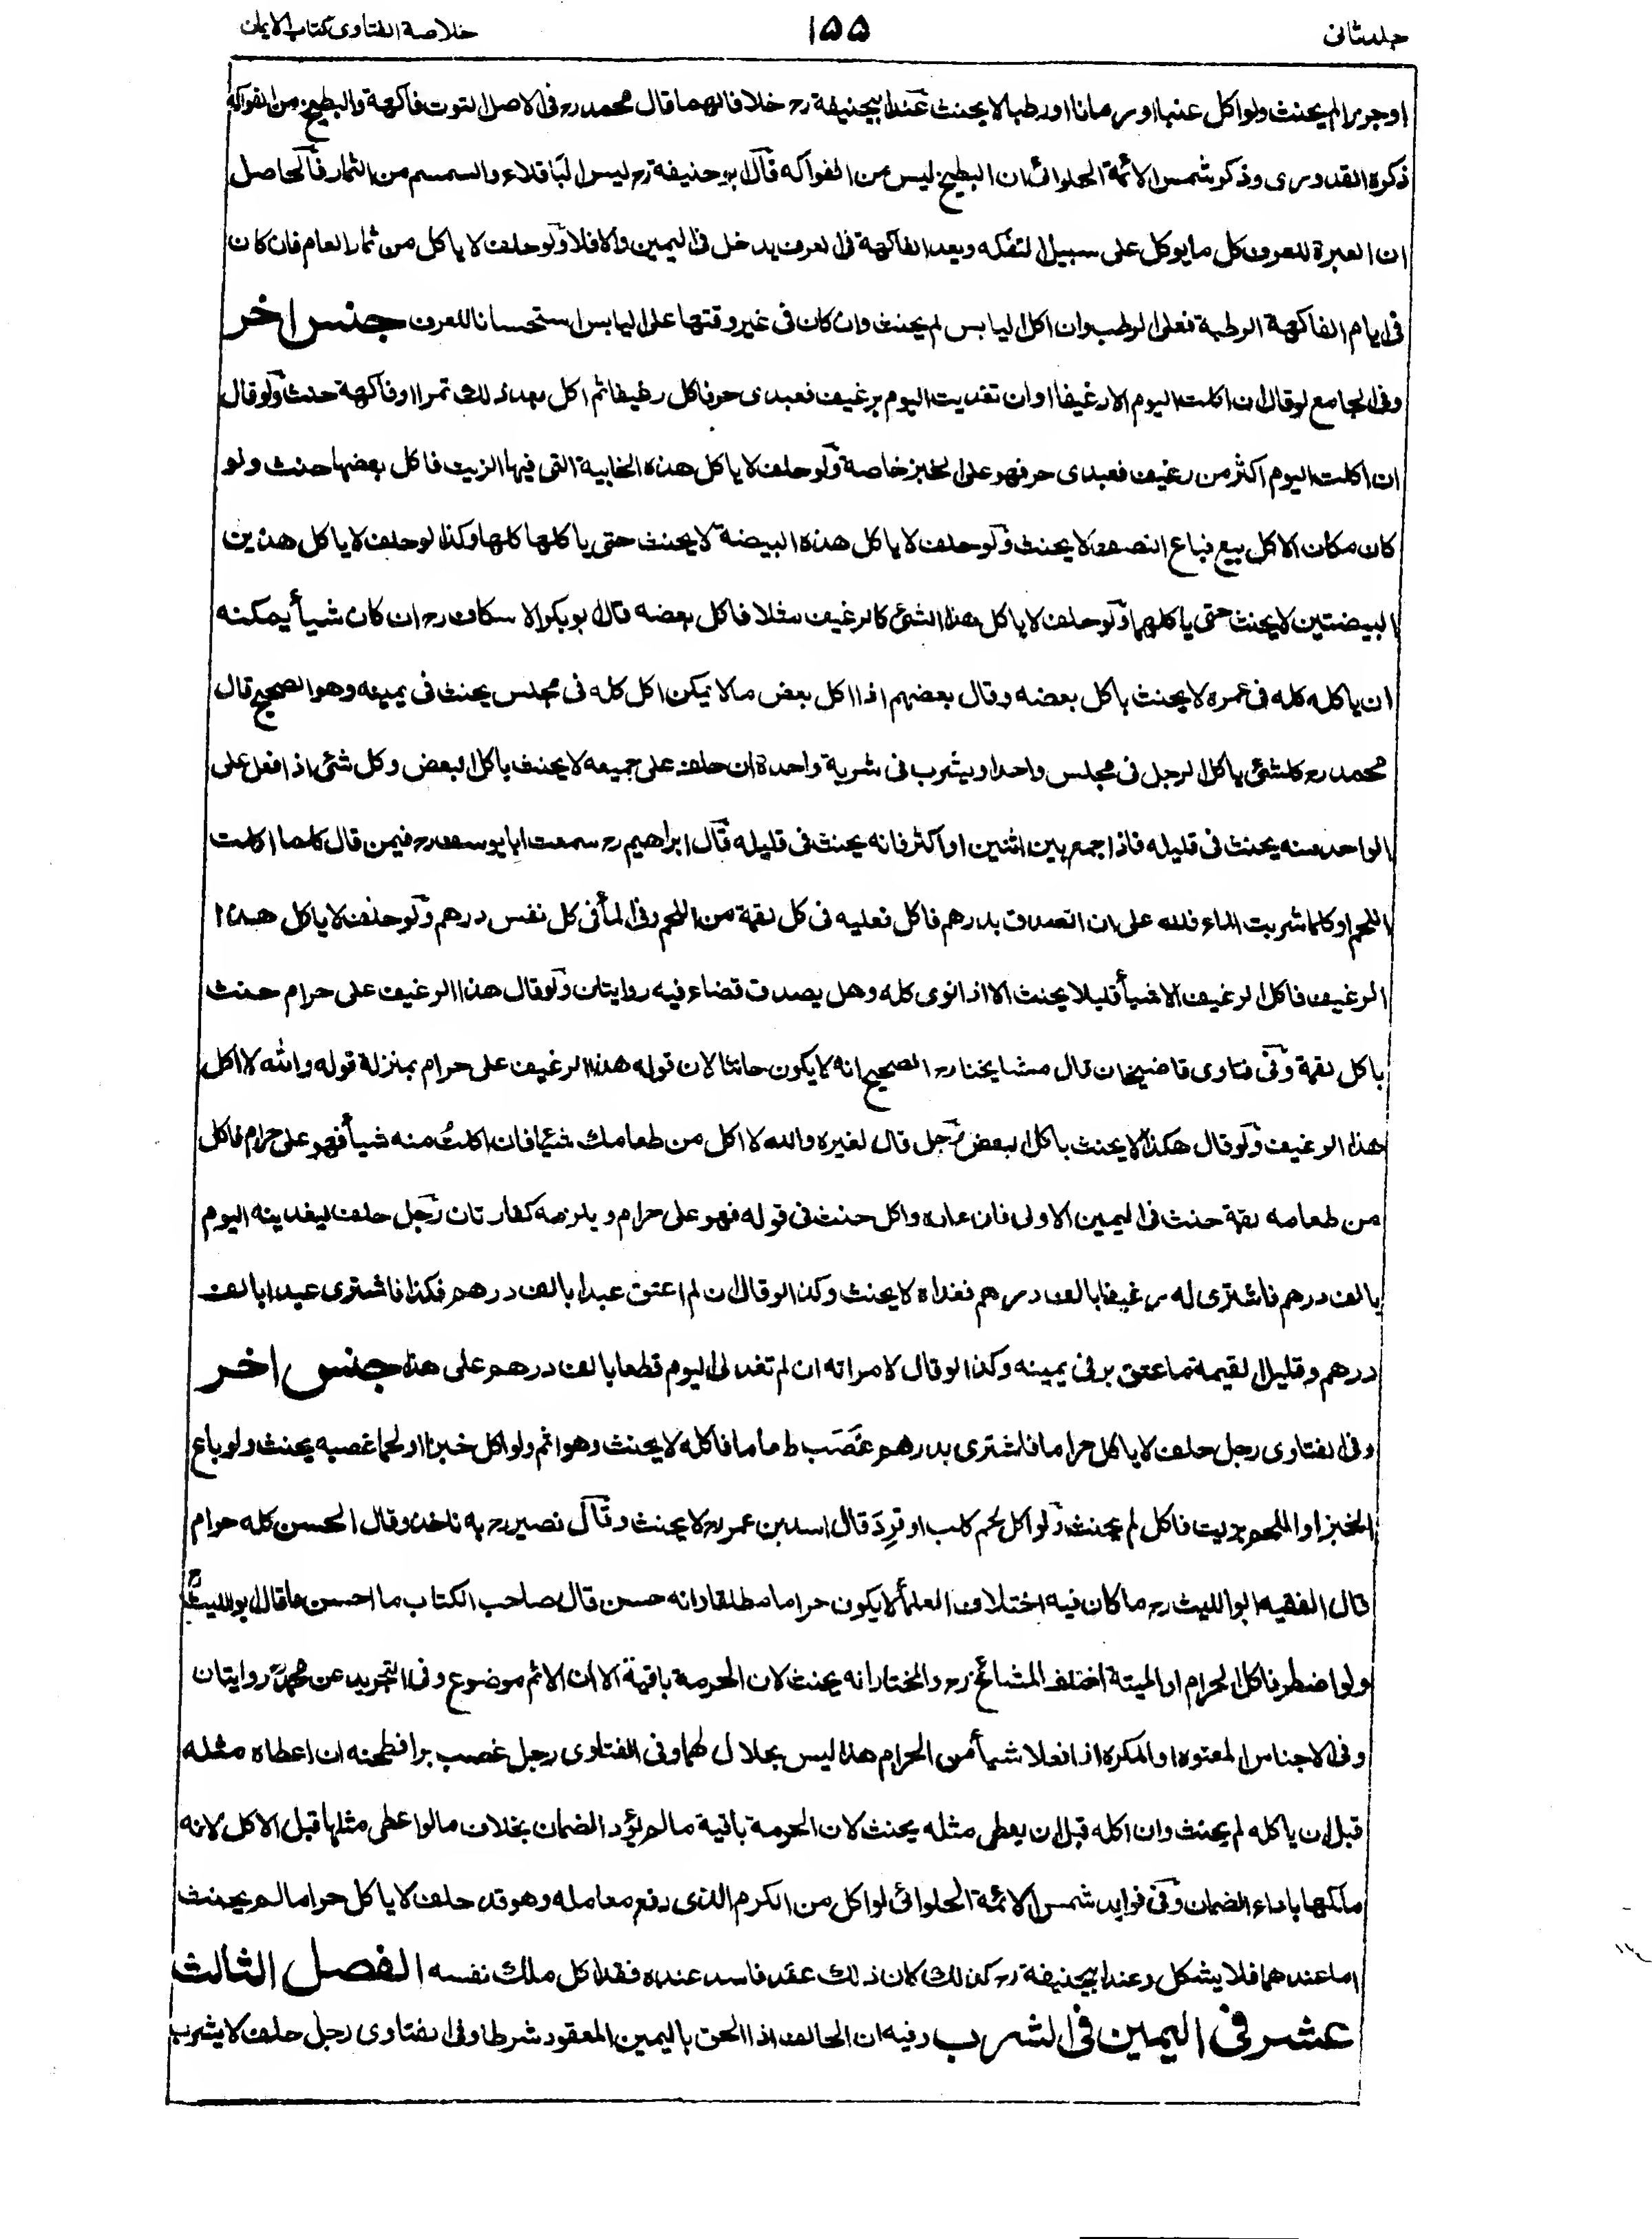 جلد ثانی ۱۵۵ خلاصة الفتاوى كتاب الايمان
او جوزا لم يحنث ولو اكل عنبا او رمانا او رطبا لا يحنث عند ابيحنيفة رح خلافا لهما قال محمد رح فى الاصل التوت فاكهة والبطيخ من الفواكه
ذكره القدورى وذكر شمس الائمة الحلوائى ان البطيخ ليس من الفواكه قال ابو حنيفة رح ليس الباقلاء والسمسم من الثمار فالحاصل
ان العبرة للعرف كل ما يوكل على سبيل التفكه ويعد الفاكهة فى العرف يدخل فى اليمين والا فلا ولو حلف لا ياكل من ثمار العام فان كان
فى ايام الفاكهة الرطبة فعلى الرطب وان اكل اليابس لم يحنث وان كان فى غير وقتها على اليابس استحسانا للعرف جنس اخر
وفى الجامع لو قال ان اكلت اليوم الا رغيفا او ان تغديت اليوم برغيف فعبدى حر فاكل رغيفا ثم اكل بعد ذلك تمرا او فاكهة حنث ولو قال
ان اكلت اليوم اكثر من رغيف فعبدى حر فهو على الخبز خاصة ولو حلف لا ياكل هذه الخابية التى فيها الزيت فاكل بعضها حنث ولو
كان مكان الاكل بيع فباع النصف لا يحنث ولو حلف لا ياكل هذه البيضة لا يحنث حتى ياكلها كلها وكذا لو حلف لا ياكل هذين
البيضتين لا يحنث حتى ياكلهما ولو حلف لا ياكل هذا الشئ كالرغيف مثلا فاكل بعضه قال ابو بكر الاسكاف رح ان كان شيأ يمكنه
ان ياكله كله فى عمره لا يحنث باكل بعضه وقال بعضهم اذا اكل بعض ما لا يمكن اكل كله فى مجلس يحنث فى يمينه وهو الصحيح قال
محمد رح كلشئ ياكل الرجل فى مجلس واحد او يشرب فى شربة واحدة ان حلف على جميعه لا يحنث باكل البعض وكل شئ اذا فعل على
الواحد منه يحنث فى قليله فاذا جمع بين اثنين او اكثر فانه يحنث فى قليله قال ابراهيم رح سمعت ابا يوسف رح فيمن قال كلما اكلت
اللحم او كلما شربت الماء فلله على ان اتصدق بدرهم فاكل فعليه فى كل لقمة من اللحم وفى الماء فى كل نفس درهم ولو حلف لا ياكل هذا
الرغيف فاكل الرغيف الا شيأ قليلا يحنث الا اذا نوى كله وهل يصدق قضاء فيه روايتان ولو قال هذا الرغيف على حرام حنث
باكل لقمة وفى فتاوى قاضيخان قال مشايخنا رح الصحيح انه لا يكون حانثا لان قوله هذا الرغيف على حرام بمنزلة قوله والله لا اكل
هذا الرغيف ولو قال هكذا لا يحنث باكل البعض رجل قال لغيره والله لا اكل من طعامك شيئا فان اكلت منه شيأ فهو على حرام فاكل
من طعامه لقمة حنث فى اليمين الاولى فان عاده واكل حنث فى قوله فهو على حرام ويلزمه كفارتان رجل حلف ليغدينه اليوم
بالف درهم فاشترى له رغيفا بالف درهم فغداه لا يحنث وكذا لو قال ان لم اعتق عبدا بالف درهم فكذا فاشترى عبدا بالف
درهم وقليل القيمة فاعتق بر فى يمينه وكذا لو قال لامراته ان لم تغدلى اليوم قطعا بالف درهم على هذا جنس اخر
وفى الفتاوى رجل حلف لا ياكل حراما فاشترى بدرهم غصب طعاما فاكله لا يحنث وهو اثم ولو اكل خبزا او لحما غصبه يحنث ولو باع
الخبز او اللحم بزيت فاكل لم يحنث ولو اكل لحم كلب او قرد قال اسد بن عمر رح لا يحنث وقال نصير رح به ناخذ وقال الحسن كله حرام
قال الفقيه ابو الليث رح ما كان فيه اختلاف العلمأ لا يكون حراما مطلقا وانه حسن قال صاحب الكتاب ما احسن ما قال ابو الليث رح
ولو اضطر فاكل الحرام او الميتة اختلف المشائخ رح والمختار انه يحنث لان الحرمة باقية الا ان الاثم موضوع وفى التجريد عن محمد رح روايتان
وفى الاجناس المعتوه او المكره اذا فعلا شيأ من الحرام هذا ليس بحلال لهما وفى الفتاوى رجل غصب برا فطحنه ان اعطاه مثله
قبل ان ياكله لم يحنث وان اكله قبل ان يعطى مثله يحنث لان الحرمة باقية ما لم يؤد الضمان بخلاف ما لو اعطى مثلها قبل الاكل لانه
ملكها باداء الضمان وفى فوايد شمس الائمة الحلوائى لو اكل من الكرم الذى رفع معامله وهو قد حلف لا ياكل حراما لم يحنث
اما عندهما فلا يشكل وعند ابيحنيفة رح كذلك لان ذلك عقد فاسد عنده فقد اكل ملك نفسه الفصل الثالث
عشر فى اليمين فى الشرب وفيه ان الحالف اذا الحق باليمين المعقود شرطا وفى الفتاوى رجل حلف لا يشرب